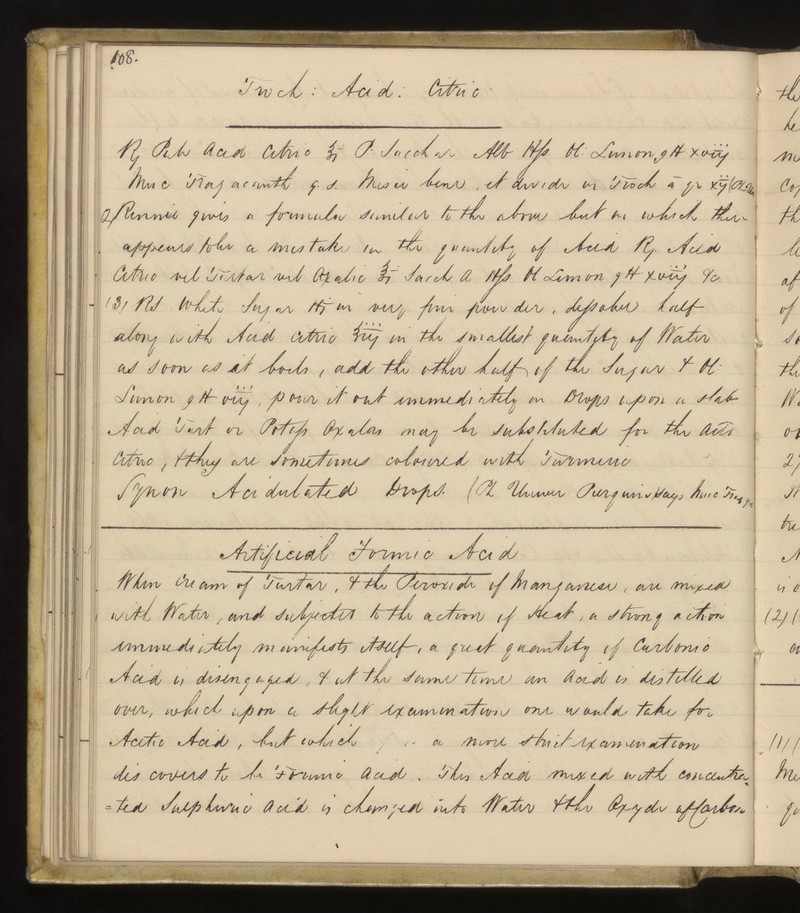 108.
Troch: Acid: Citric
℞ Pulv Acid Citric ʒj P. Sacchar Alb ℔ß Ol. Limon gtt xviij
Muc Tragacanth q. s. Misce bene, et divide in Troch a gr xij
(2) Rennie gives a formula similar to the above but in which there
appears to be a mistake in the quantity of Acid ℞ Acid
Citric vel Tartar vel Oxalic ʒj Sacch A ℔ß Ol Limon gtt xviij &c
(3) Rd White Sugar ℔j in very fine powder, dissolve half
along with Acid citric ʒiij in the smallest quantity of Water
as soon as it boils, add the other half of the Sugar & Ol:
Limon gtt viij, pour it out immediately in Drops upon a slab
Acid Tart or Potass Oxalas may be substituted for the Acid
Citric, & they are sometimes coloured with Turmeric
Synon Acidulated Drops. (Ph Univer Pierquin says Muc Trag
Artificial Formic Acid
When Cream of Tartar, & the Peroxide of Manganese, are mixed
with Water, and subjected to the action of Heat, a strong action
immediately manifests itself, a great quantity of Carbonic
Acid is disengaged, & at the same time an Acid is distilled
over, which upon a slight examination one would take for
Acetic Acid, but which a more strict examination
discovers to be Formic Acid. This Acid mixed with concentra-
=ted Sulphuric acid is changed into Water & the Oxyde of Carbon